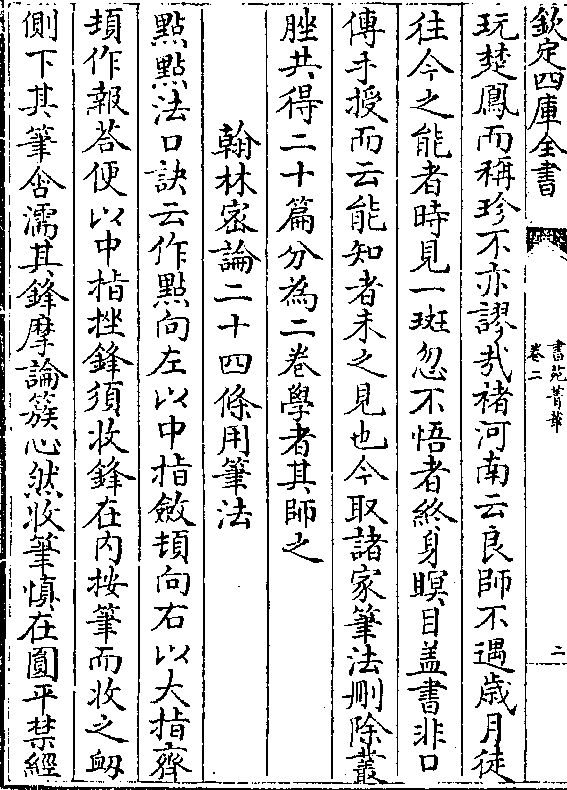 欽定四庫全書
書苑菁華
卷二
二
玩楚鳳而稱珍不亦謬哉褚河南云良師不遇歲月徒
往今之能者時見一斑忽不悟者終身瞑目蓋書非口
傳手授而云能知者未之見也今取諸家筆法刪除叢
脞共得二十篇分為二卷學者其師之
翰林密論二十四條用筆法
點點法口訣云作點向左以中指斂頓向右以大指齊
頓作報荅便以中指挫鋒須收鋒在內按筆而收之衂
側下其筆含濡其鋒摩論簇心然收筆慎在圓平禁經